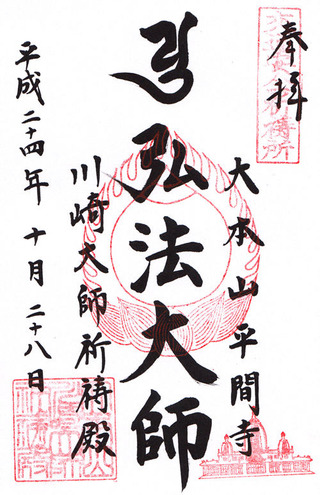 奉拝
大本山平間寺
弘法大師
川崎大師祈祷殿
平成二十四年十月二十八日